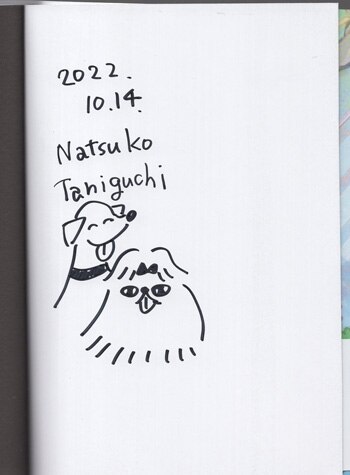 2022.
10.14.
Natsuko
Taniguchi